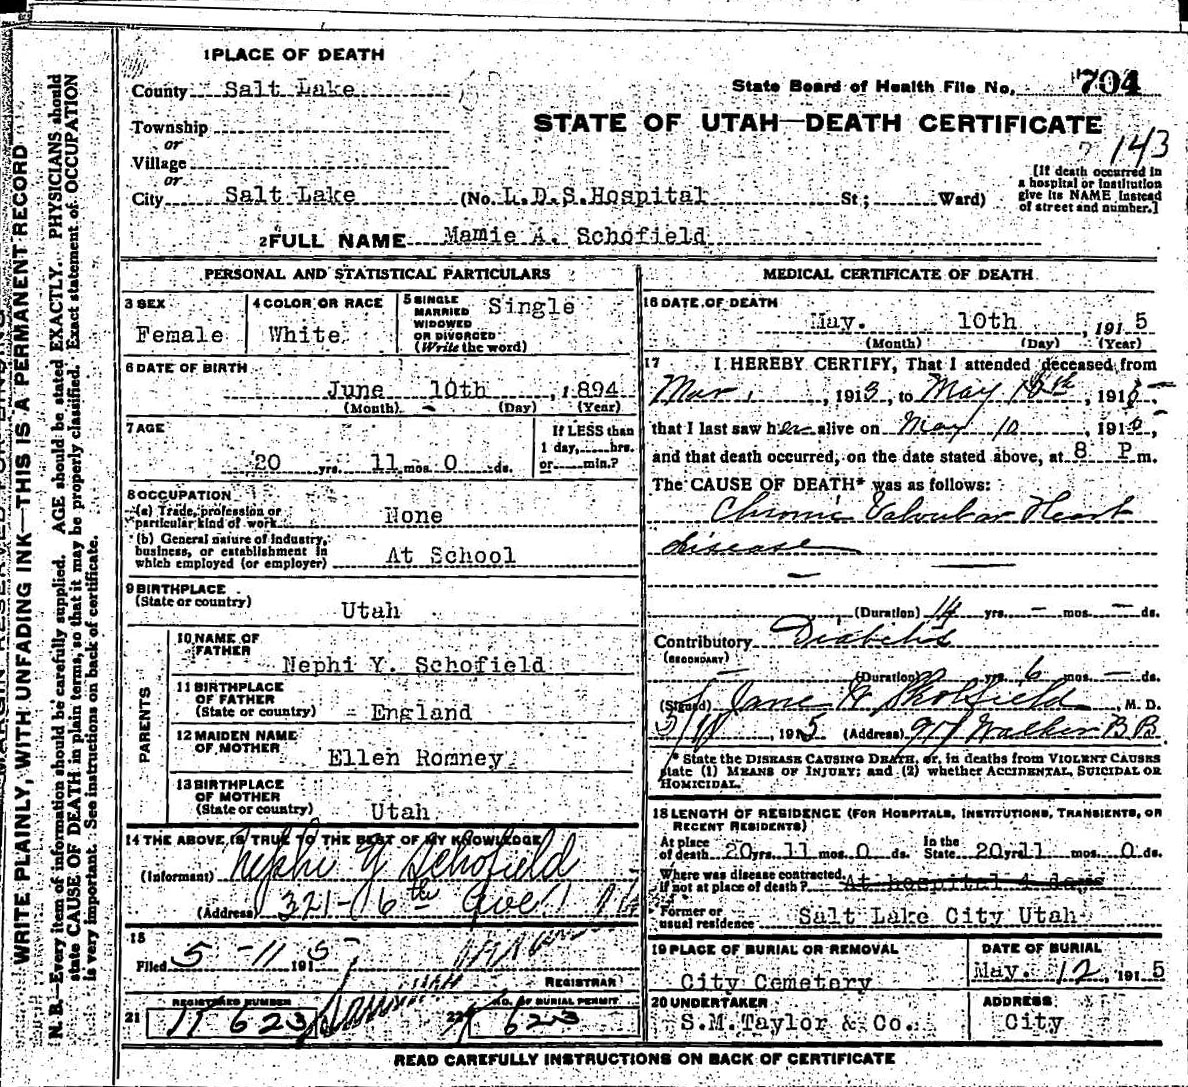 1 PLACE OF DEATH
County Salt Lake
State Board of Health File No. 704
Township
or
Village
or
City Salt Lake (No. L.D.S. Hospital St; Ward)
STATE OF UTAH—DEATH CERTIFICATE
143
[If death occurred in
a hospital or institution
give its NAME instead
of street and number.]
2 FULL NAME Mamie A. Schofield
PERSONAL AND STATISTICAL PARTICULARS
3 SEX
Female
4 COLOR OR RACE
White
5 SINGLE
MARRIED
WIDOWED
OR DIVORCED
(Write the word)
Single
6 DATE OF BIRTH
June 10th, 1894
(Month) (Day) (Year)
7 AGE
20 yrs. 11 mos. 0 ds.
If LESS than
1 day, hrs.
or min.?
8 OCCUPATION
(a) Trade, profession or
particular kind of work None
(b) General nature of industry,
business, or establishment in
which employed (or employer) At School
9 BIRTHPLACE
(State or country)
Utah
PARENTS
10 NAME OF
FATHER
Nephi Y. Schofield
11 BIRTHPLACE
OF FATHER
(State or country)
England
12 MAIDEN NAME
OF MOTHER
Ellen Romney
13 BIRTHPLACE
OF MOTHER
(State or country)
Utah
14 THE ABOVE IS TRUE TO THE BEST OF MY KNOWLEDGE
(Informant) Nephi Y Schofield
(Address) 321 - 6th Ave
15
Filed 5-11 1915
REGISTRAR
REGISTERED NUMBER
21 623
NO. OF BURIAL PERMIT
22 623
MEDICAL CERTIFICATE OF DEATH
16 DATE OF DEATH
May. 10th, 1915
(Month) (Day) (Year)
17 I HEREBY CERTIFY, That I attended deceased from
Mar., 1913, to May, 1915
that I last saw her alive on May 10, 1915,
and that death occurred, on the date stated above, at 8 P m.
The CAUSE OF DEATH* was as follows:
Chronic Valvular Heart
disease
(Duration) 14 yrs. - mos. - ds.
Contributory Diabetis
(SECONDARY)
(Duration) yrs. 6 mos. - ds.
(Signed) Jane W Skolfield, M. D.
1915 (Address) 917 Walker B B
* State the DISEASE CAUSING DEATH, or, in deaths from VIOLENT CAUSES
state (1) MEANS OF INJURY; and (2) whether ACCIDENTAL, SUICIDAL OR
HOMICIDAL.
18 LENGTH OF RESIDENCE (FOR HOSPITALS, INSTITUTIONS, TRANSIENTS, OR
RECENT RESIDENTS)
At place
of death 20 yrs. 11 mos. 0 ds. In the
State 20 yrs. 11 mos. 0 ds.
Where was disease contracted,
if not at place of death? At hospital 4 days
Former or
usual residence Salt Lake City Utah
19 PLACE OF BURIAL OR REMOVAL
City Cemetery
DATE OF BURIAL
May. 12 1915
20 UNDERTAKER
S.M. Taylor & Co.
ADDRESS
City
READ CAREFULLY INSTRUCTIONS ON BACK OF CERTIFICATE
WRITE PLAINLY, WITH UNFADING INK—THIS IS A PERMANENT RECORD
N. B.—Every item of information should be carefully supplied. AGE should be stated EXACTLY. PHYSICIANS should
state CAUSE OF DEATH in plain terms, so that it may be properly classified. Exact statement of OCCUPATION
is very important. See instructions on back of certificate.